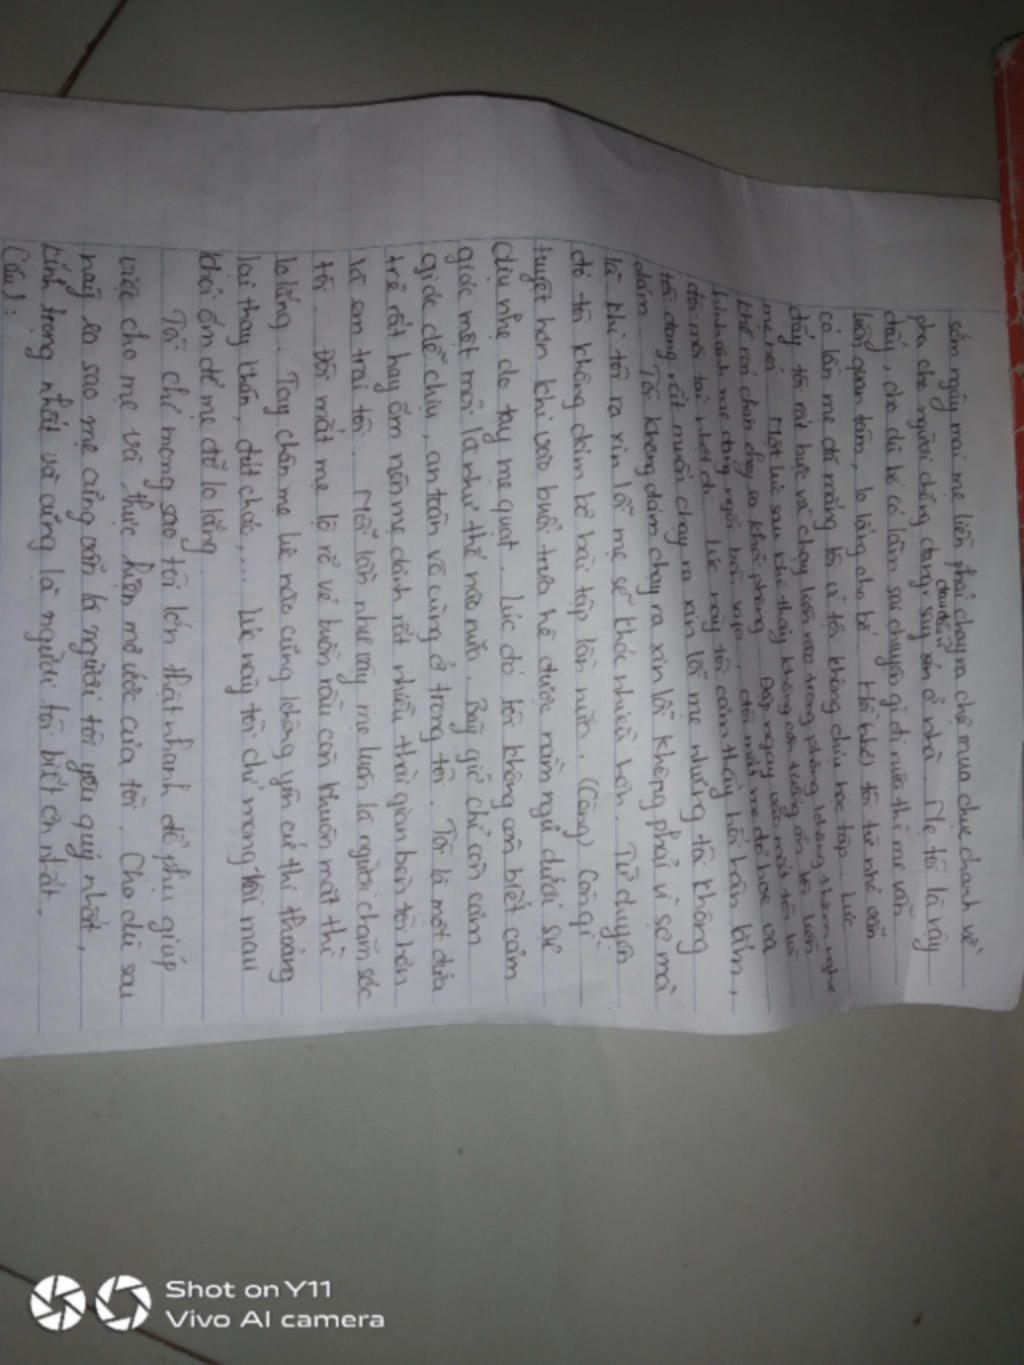 sáng ngày mai mẹ liền phải chạy ra chợ mua chục chanh về
pha cho người chồng đang say xỉn ở nhà. Mẹ tôi là vậy
đau đầu
đấy, cho dù bé có lần sai chuyện gì đi nữa thì mẹ vẫn
luôn quan tâm, lo lắng cho bé. Hồi nhỏ, tôi từ nhỏ
có lần mẹ đã mắng tôi vì tôi không chịu học tập. Lúc
đấy tôi rất bực và chạy luôn vào trong phòng không thèm nghe
mẹ nói. Một lúc sau khi thấy không còn tôi luôn
chạy ra khỏi phòng. Đập ngay vào mắt tôi là
hình ảnh mẹ đang ngồi, đôi mắt mẹ đỏ hoe và
đôi môi tái nhợt đi. Lúc này tôi cảm thấy hối hận lắm,
tôi đang rất muốn chạy ra xin lỗi mẹ nhưng tôi không
dám. Tôi không dám chạy ra xin lỗi không phải vì sợ mà
là khi tôi ra xin lỗi mẹ sẽ khóc nhiều hơn. Từ chuyện
đó tôi không dám bỏ bài tập lần nữa. (Công) Còn gì
tuyệt hơn khi vào buổi trưa hè được nằm ngủ dưới sự
dịu nhẹ do tay mẹ quạt. Lúc đó tôi không còn biết cảm
giác mệt mỏi là như thế nào nữa. Bây giờ chỉ còn cảm
giác dễ chịu, an toàn vô cùng ở trong tôi. Tôi là một đứa
trẻ rất hay ốm nên mẹ dành rất nhiều thời gian bên tôi hơn
là em trai tôi. Mỗi lần như vậy mẹ luôn là người chăm sóc
tôi. Đôi mắt mẹ lộ rõ vẻ buồn rầu còn khuôn mặt thì
lo lắng. Tay chân mẹ lúc nào cũng không yên cứ thi thoảng
lại thay khăn, đút cháo,... Lúc này tôi chỉ mong tôi mau
khỏi ốm để mẹ đỡ lo lắng
Tôi chỉ mong sao tôi lớn thật nhanh để phụ giúp
việc cho mẹ và thực hiện mơ ước của tôi. Cho dù sau
này ra sao mẹ cũng vẫn là người tôi yêu quý nhất,
kính trọng nhất và cũng là người tôi biết ơn nhất.
Câu 1:
Shot on Y11
Vivo AI camera